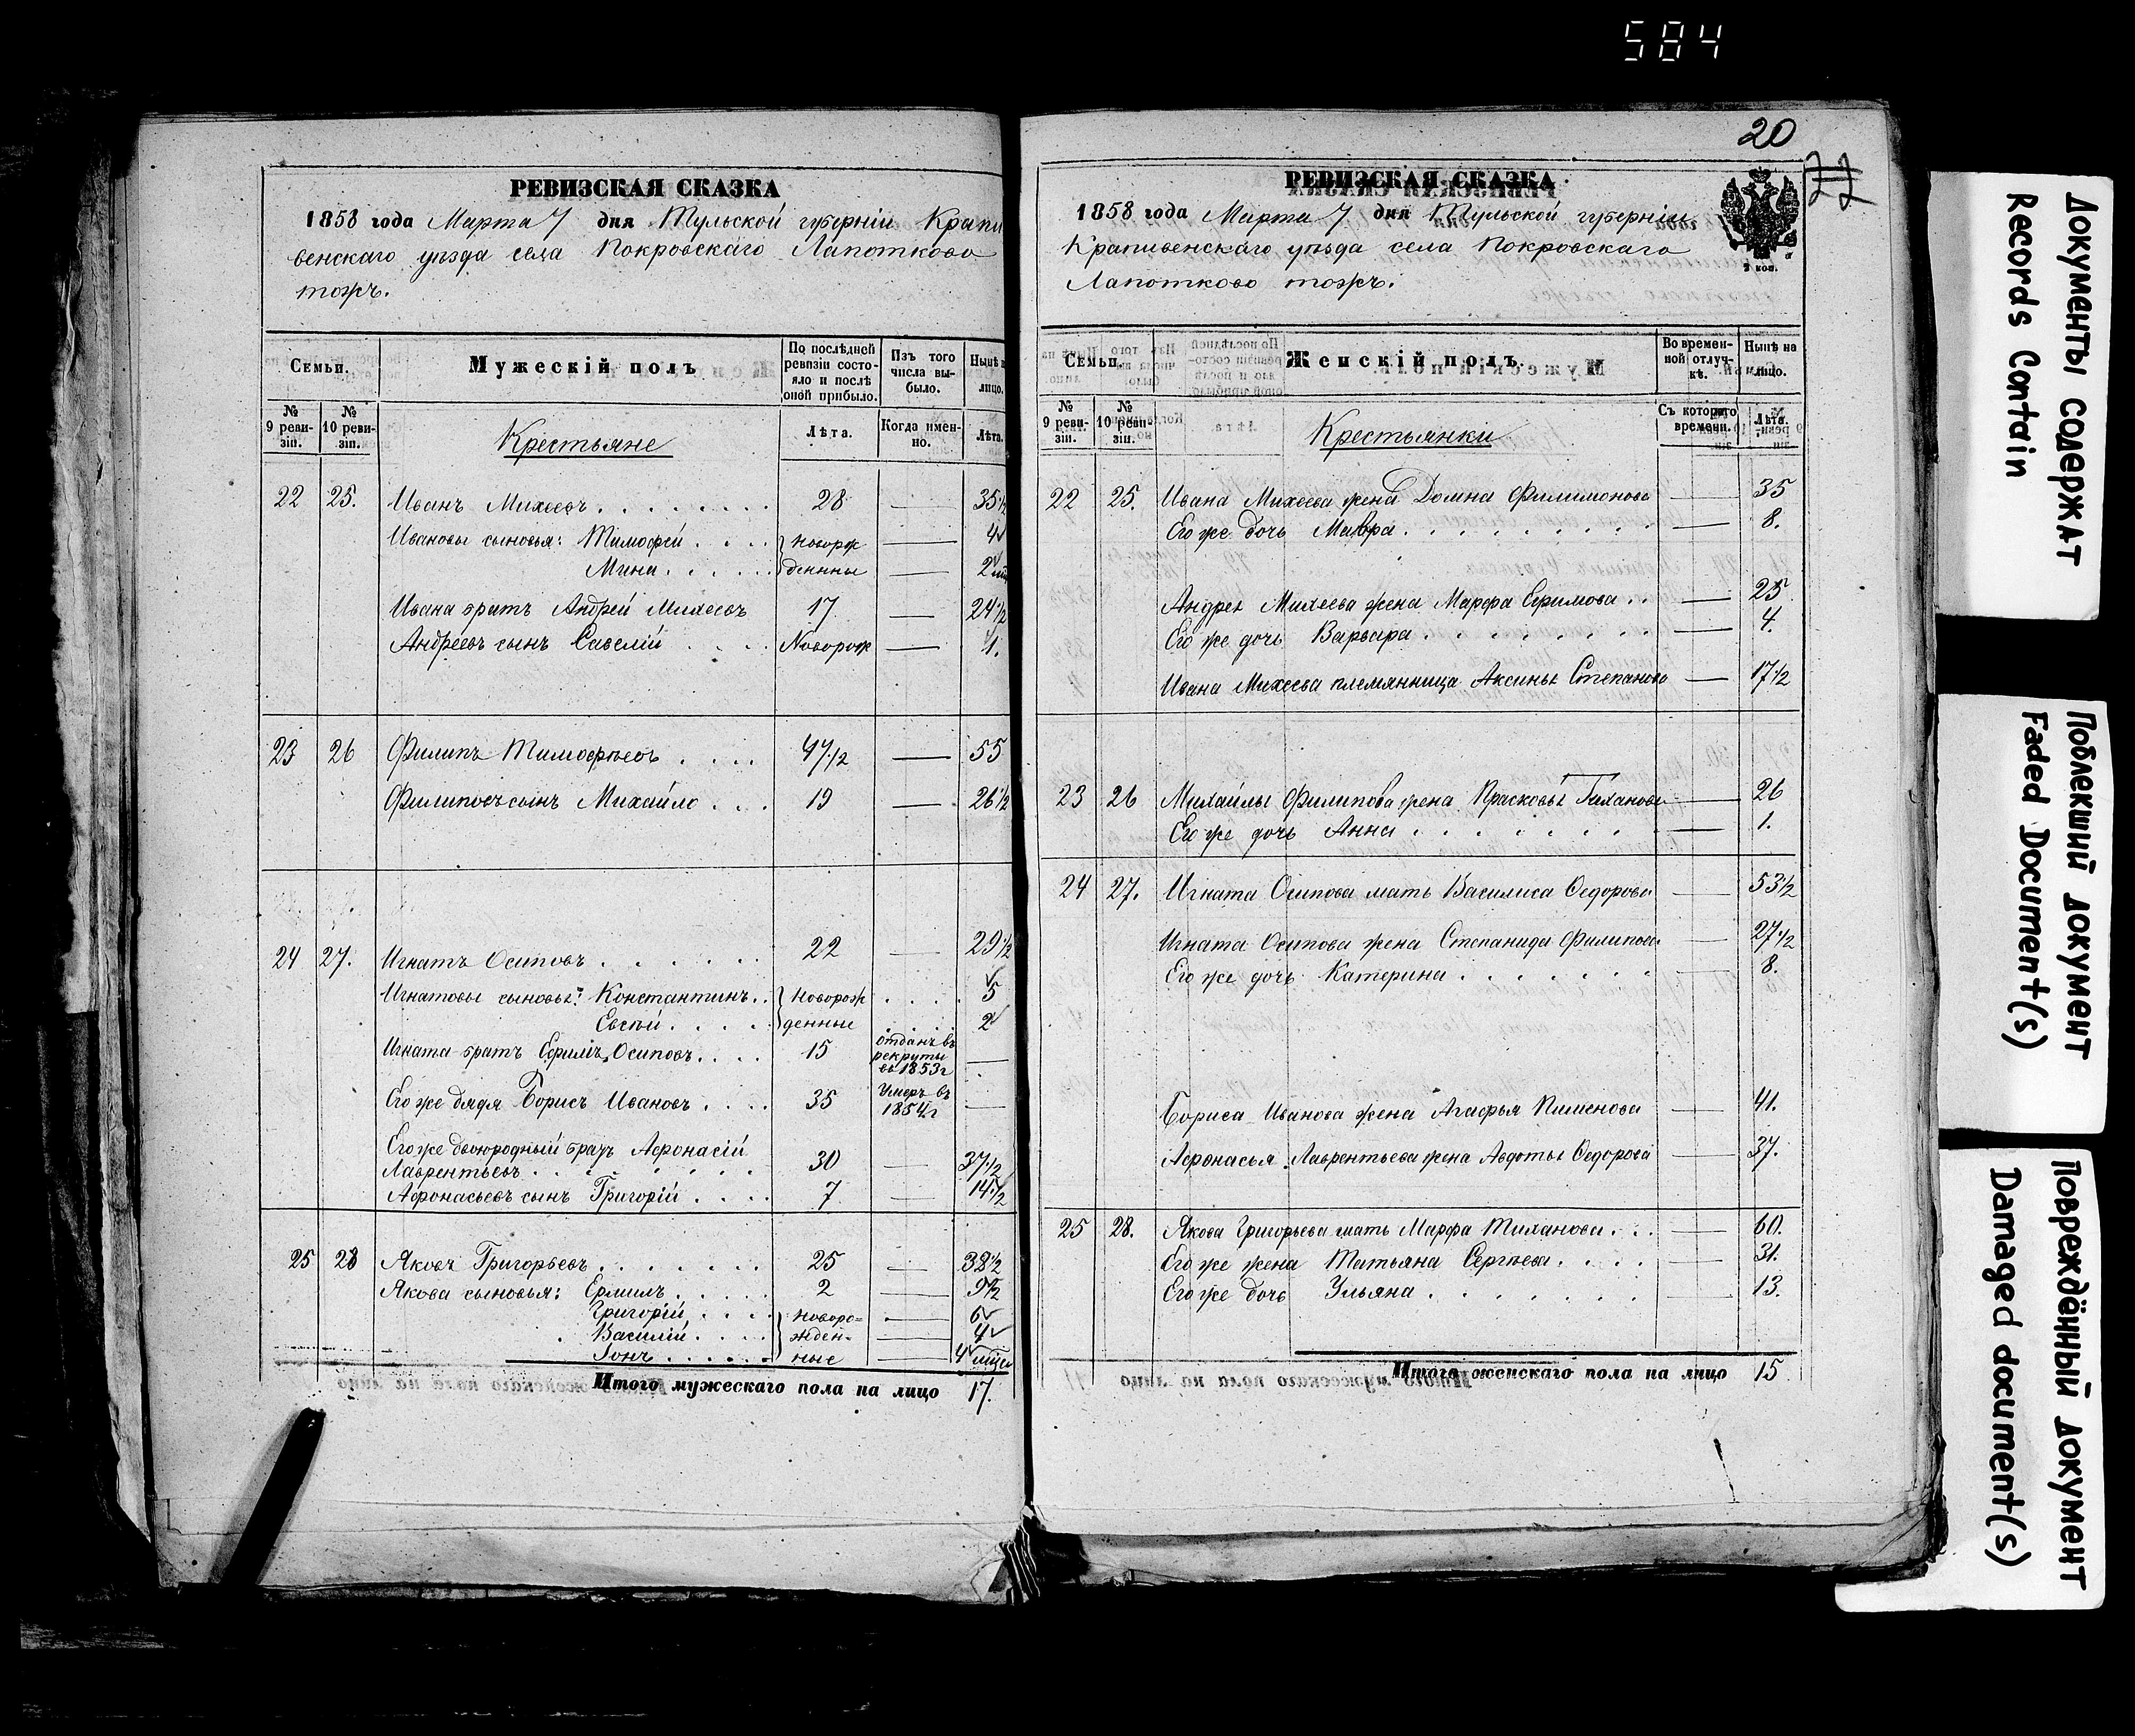 584
РЕВИЗСКАЯ СКАЗКА
1858 года Марта 7 дня Тульской губерніи Крапи
венскаго уѣзда села Покровскаго Лапотково
тожъ.
Семьи.
Мужескій полъ
По послѣдней ревизіи состояло и послѣ оной прибыло.
Изъ того числа выбыло.
Нынѣ
лицо.
№ 9 ревизіи.
№ 10 ревизіи.
Крестьяне
Лѣта.
Когда именно.
Лѣта.
22 25. Иванъ Михеевъ 28 — 35 1/2
Ивановы сыновья: Тимофей } новорж — 4
Мина } денные — 2
Ивана братъ Андрей Михеевъ 17 — 24 1/2
Андреевъ сынъ Савелій Новорож — 1.
23 26 Филипъ Тимофѣевъ 47 1/2 — 55
Филиповъ сынъ Михайло 19 — 26 1/2
24 27. Игнатъ Осиповъ 22 — 29 1/2
Игнатовы сыновья: Константинъ } новорож 5
Евсѣй } денные 2
Игната братъ Ефимъ Осиповъ 15 отданъ въ рекруты въ 1853 г —
Его же дядя Борисъ Ивановъ 35 Умеръ въ 1854 г —
Его же двоюродный братъ Афонасій
Лаврентьевъ 30 — 37 1/2
Афонасьевъ сынъ Григорій 7 — 14 1/2
25 28 Яковъ Григорьевъ 25 — 38 1/2
Якова сыновья: Ермилъ 2 — 9 1/2
Григорій } новоро= — 6
Василій } жден= — 4
ные — 4
Итого мужескаго пола на лицо 17.
20
РЕВИЗСКАЯ СКАЗКА
2 коп.
1858 года Марта 7 дня Тульской губерніи
Крапивенскаго уѣзда села Покровскаго
Лапотково тожъ.
Семьи.
Женскій полъ.
Во временной отлучкѣ.
Нынѣ на лицо.
№ 9 ревизіи.
№ 10 ревизіи.
Крестьянки
Съ котораго времени.
Лѣта.
22 25. Ивана Михеева жена Домна Филимонова — 35
Его же дочь Мавра — 8.
Андрея Михеева жена Марфа Ефимова — 25
Его же дочь Варвара — 4.
Ивана Михеева племянница Аксинья Степанова — 17 1/2
23 26 Михайлы Филипова жена Прасковья Тиханова — 26
Его же дочь Анна — 1.
24 27. Игната Осипова мать Василиса Федорова — 53 1/2
Игната Осипова жена Степанида Филипова — 27 1/2
Его же дочь Катерина — 8.
Бориса Иванова жена Агафья Пименова — 41.
Афонасья Лаврентьева жена Авдотья Федорова — 37.
25 28. Якова Григорьева мать Марфа Тиханова — 60.
Его же жена Татьяна Сергѣева — 31.
Его же дочь Ульяна — 13.
Итого женскаго пола на лицо 15
Документы содержат
Records Contain
Поблекший документ
Faded Document(s)
Повреждённый документ
Damaged document(s)